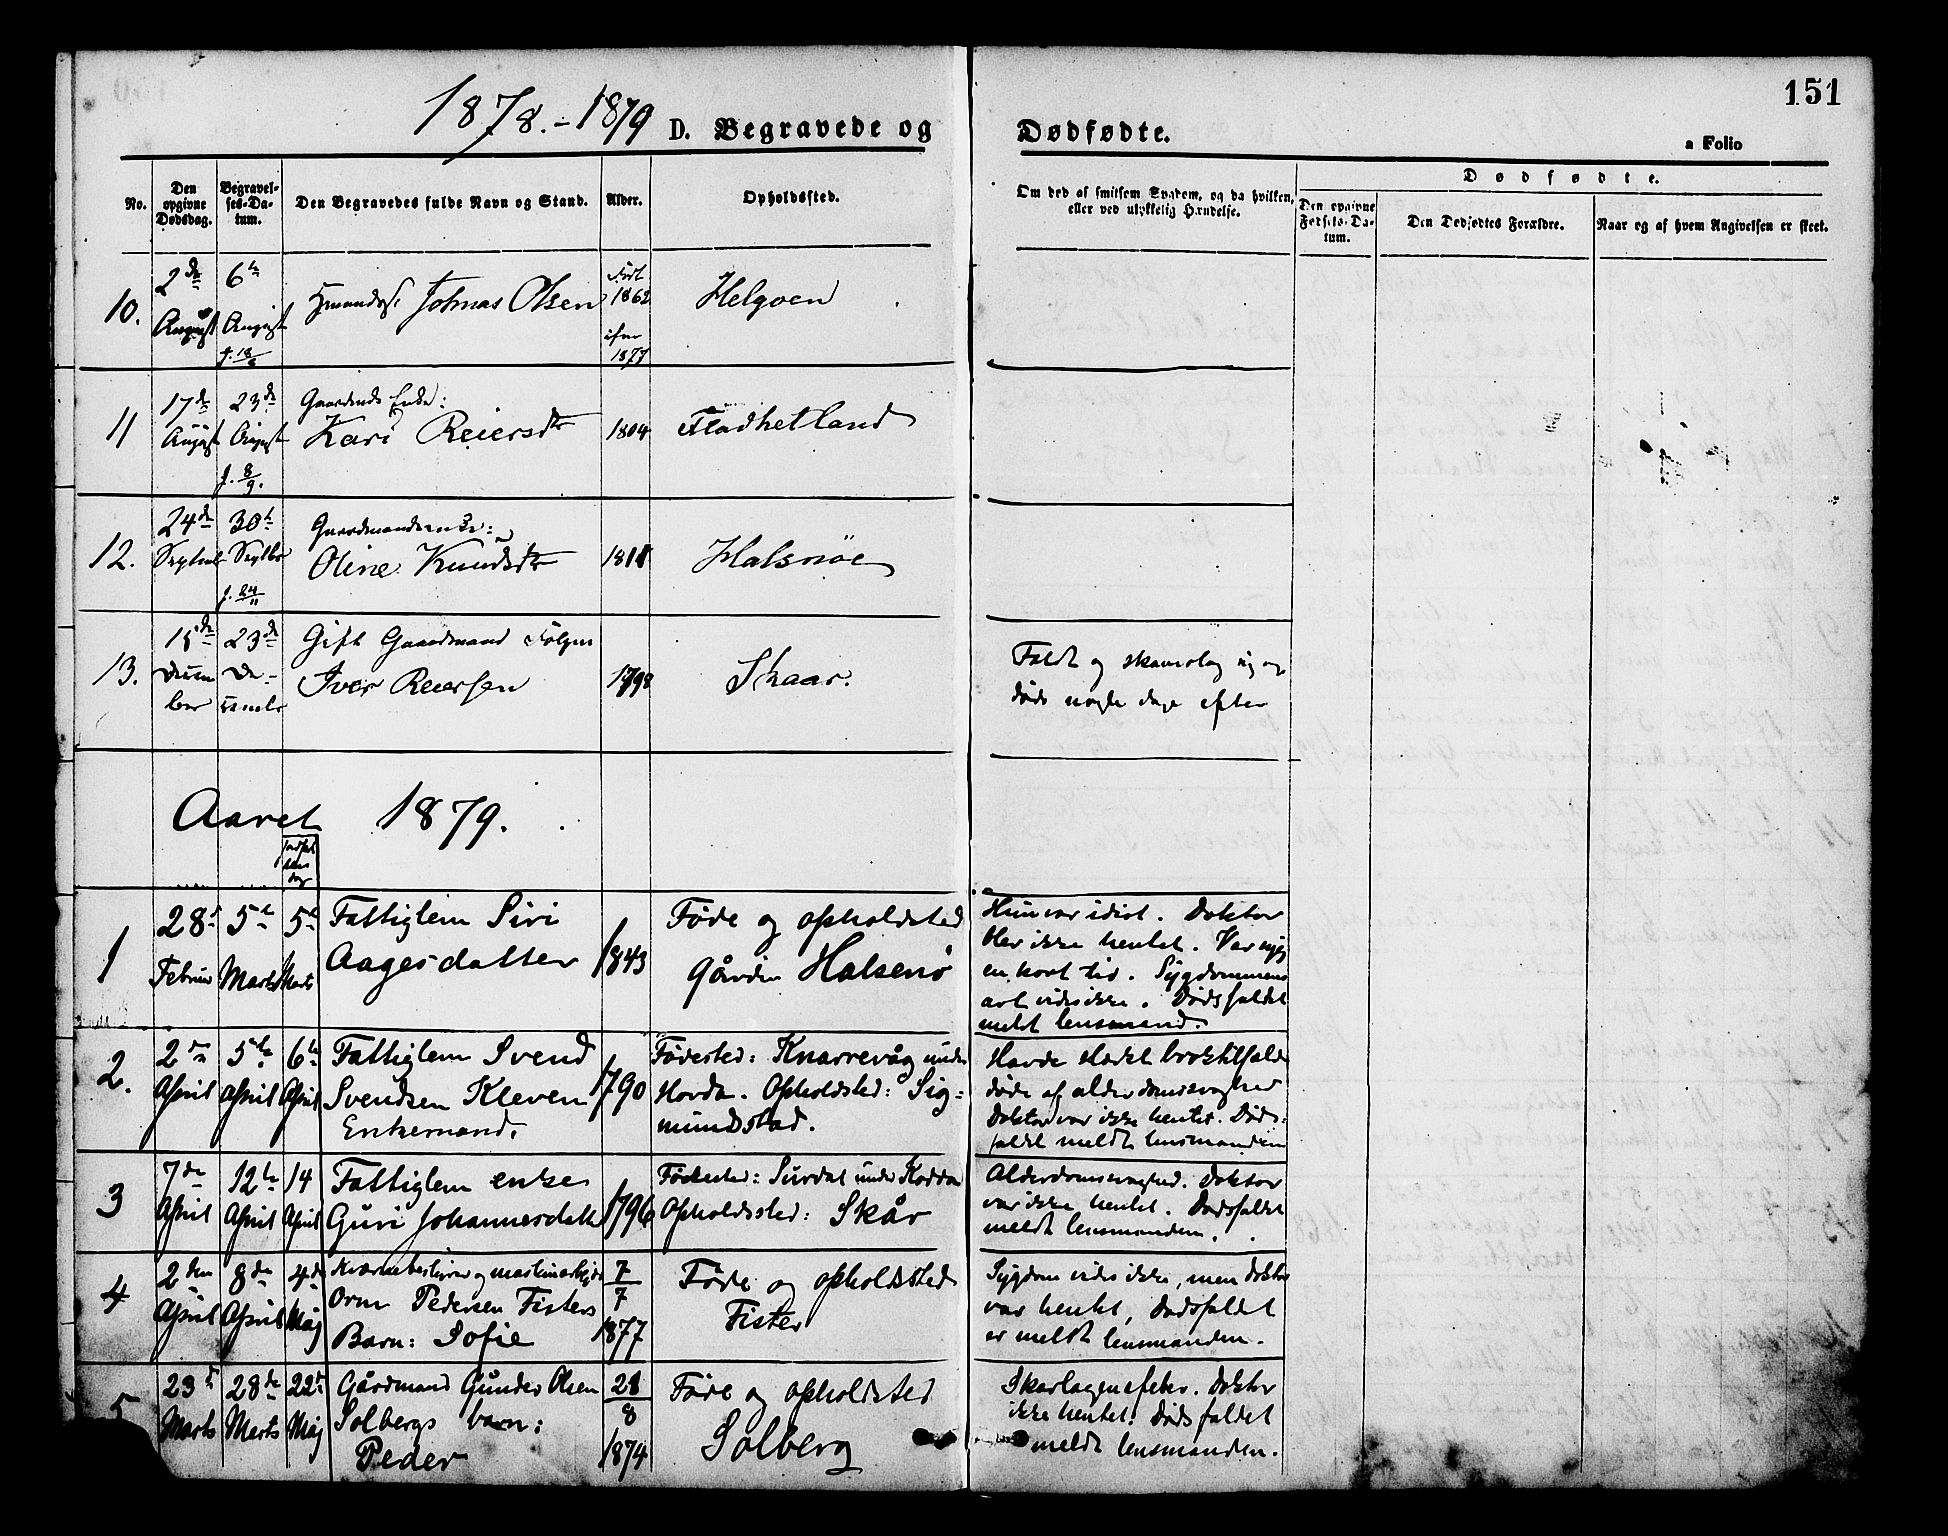 151
1878.-1879 D. Begravede og Dødfødte.
a Folio
No.
Den opgivne Dødsdag.
Begravelses-Datum.
Den Begravedes fulde Navn og Stand.
Alder.
Opholdssted.
Om død af smitsom Sygdom, og da hvilken,
eller ved ulykkelig Hændelse.
Dødfødte.
Den opgivne Fødsels-Datum.
Den Dødfødtes Forældre.
Naar og af hvem Angivelsen er skeet.
10.
2den August
6te August
f. 18/8
Johnas Olsen
Født 1862
1877
Helgøen
11
17de August
23de August
f. 8/9.
Enke:
Kari Reiersdtr
1804
Fladhetland
12.
24de Septembr
30te Septbr
f. 24/11
Gaardmandsenke:
Oline Knudsdtr
1811
Halsnøe
13.
15de December
23de December
Gift Gaardmand Følgm
Iver Reiersen
1798
Skaar.
Faldt og skamslog sig og
døde nogle dage efter
Aaret 1879.
jordfæstelsens dag
1
28de Februar
5te Marts
5te Marts
Fattiglem Siri
Aagesdatter
1843
Føde og opholdsted
gården Halsenø
Hun var idiot. Doktor
blev ikke hentet. Var syg
en kort tid. Sygdommens
art vides ikke. Dødsfaldet
meldt lensmand.
2.
2den April
5te April
6te April
Fattiglem Svend
Svendsen Kleven
Enkemand.
1790
Fødested: Knarrevåg under
Hovda. Opholdsted: Sig-
mundstad.
Havde havt broktilfælde
døde af alderdomsvaghed
Doktor var ikke hentet. Døds-
faldet meldt lensmanden
3
7de April
12te April
14 April
Fattiglem enke
Guri Johannesdatt
1796
Fødested: Surdal under
Opholdssted: Skår
Alderdomsvaghed. Doktor
var ikke hentet. Dødsfaldet
meldt lensmanden.
4
2den April
8de April
4de Maj
Kværnebestyrer og maskinarbejder
Orm Pedersen Fisters
Barn: Sofie
7/7 1877
Føde og opholdsted
Fister
Sygdom vides ikke, men doktor
var hentet, Dødsfaldet
er meldt lensmanden.
5
23de Marts
28de Marts
22de Maj
Gårdmand Gunder Olsen
Solbergs barn:
Peder
28/8 1874
Føde og opholdsted
Solberg
Skarlagensfeber. Doktor
ikke hentet. Dødsfaldet
meldt lensmanden.